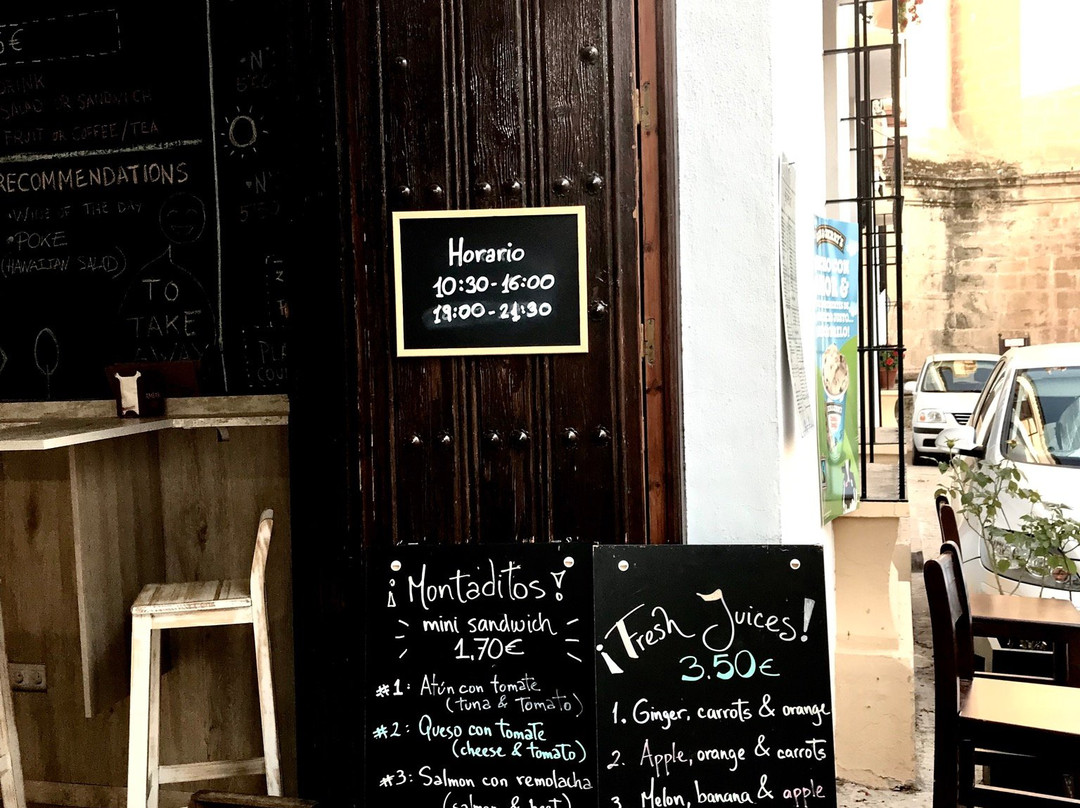 5€
DRINK
SALAD OR SANDWICH
FRUIT OR COFFEE/TEA
RECOMMENDATIONS
•WINE OF THE DAY
•POKE
(HAWAIIAN SALAD)
TO
TAKE
AWAY
Horario
10:30-16:00
19:00-21:30
¡Montaditos!
mini sandwich
1,70€
#1: Atún con tomate
(tuna & tomato)
#2: Queso con tomate
(cheese & tomato)
#3: Salmon con remolacha
(salmon & beet)
¡Fresh Juices!
3.50€
1. Ginger, carrots & orange
2. Apple, orange & carrots
3 Melon, banana & apple